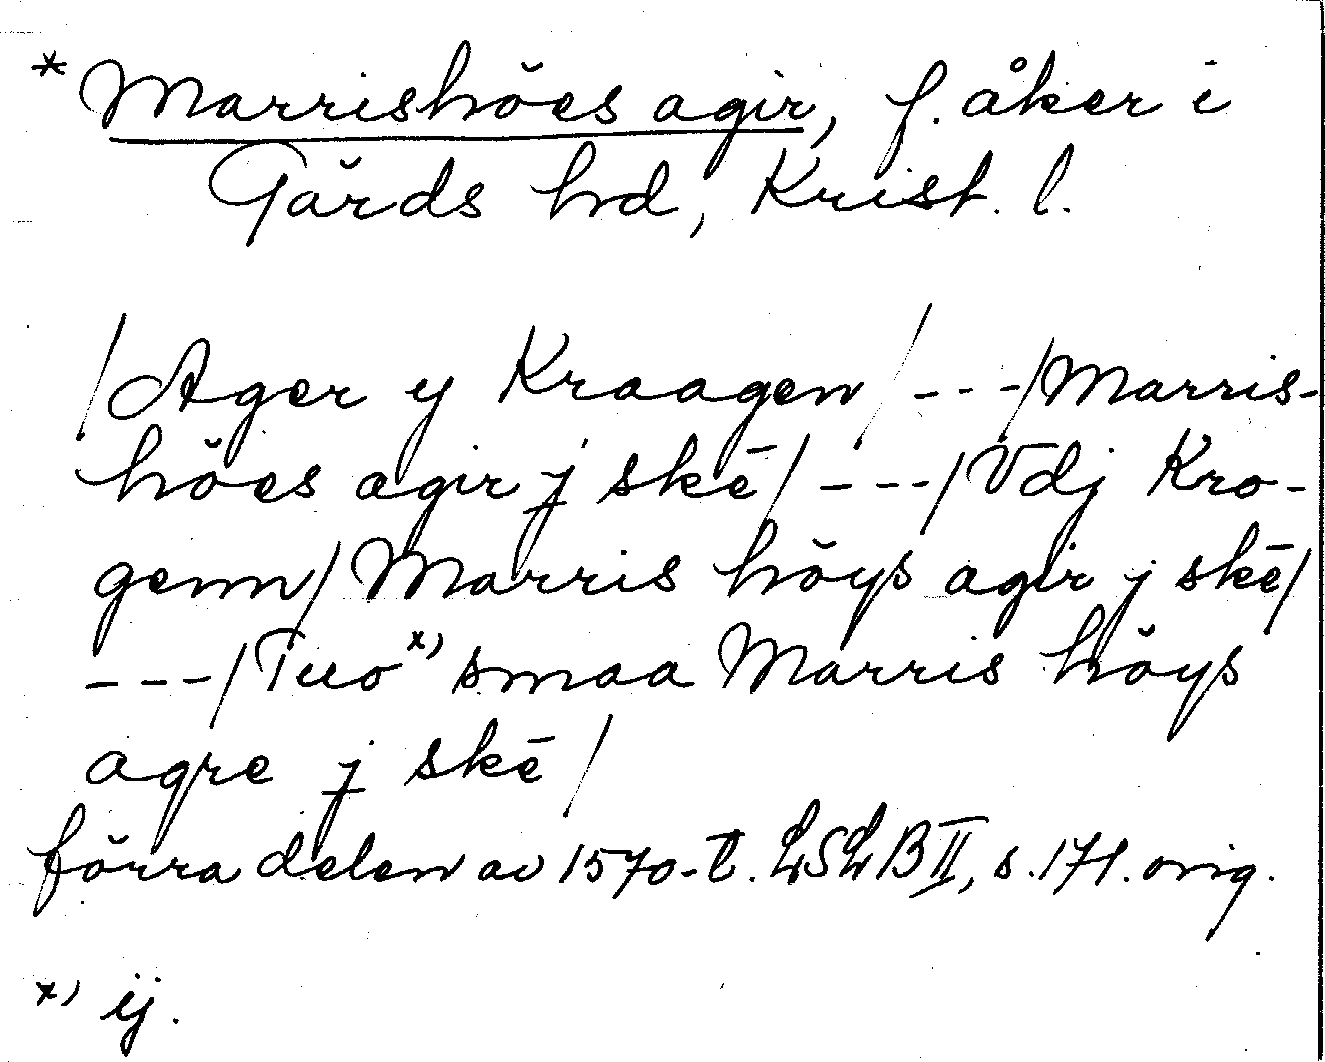 * Marrishöes agir, f. åker i
Gärds hd, Krist. l.
/Ager y Kraagen/ ---/Marris-
höes agir j skē/ ---/Vdj Kro-
genn/Marris höys agir j skē/
---/Tuo x) smaa Marris höys
agre j skē/
förra delen av 1570-t. LSLB II, s. 171. orig.
x) ij.